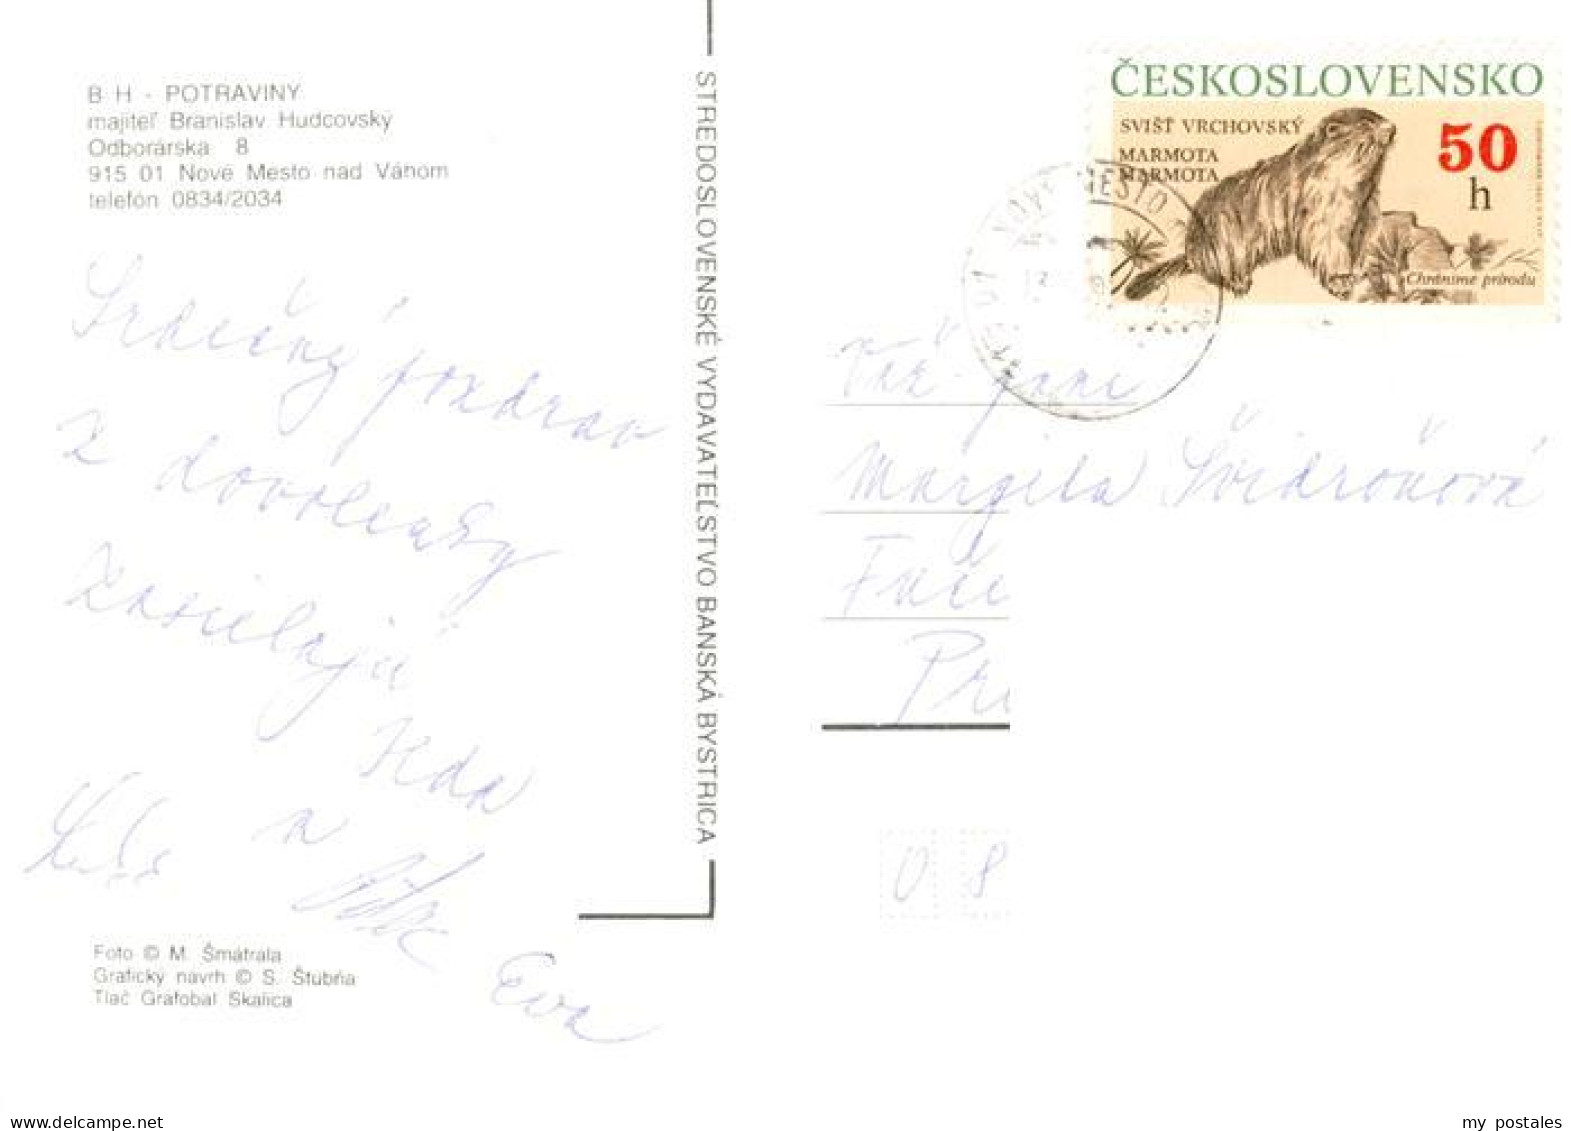 B H - POTRAVINY
majiteľ Branislav Hudcovský
Odborárska 8
915 01 Nové Mesto nad Váhom
telefón 0834/2034
Srdečný pozdrav
z dovolenky
zasielajú
a
Eva
Foto © M. Šmátrala
Grafický návrh © S. Štubňa
Tlač Grafobal Skalica
STREDOSLOVENSKÉ VYDAVATEĽSTVO BANSKÁ BYSTRICA
ČESKOSLOVENSKO
SVIŠŤ VRCHOVSKÝ
MARMOTA
MARMOTA
50
h
Chráníme přírodu
NOVÉ MESTO
Váž. pani
Margita Švidroňová
0 8
my postales